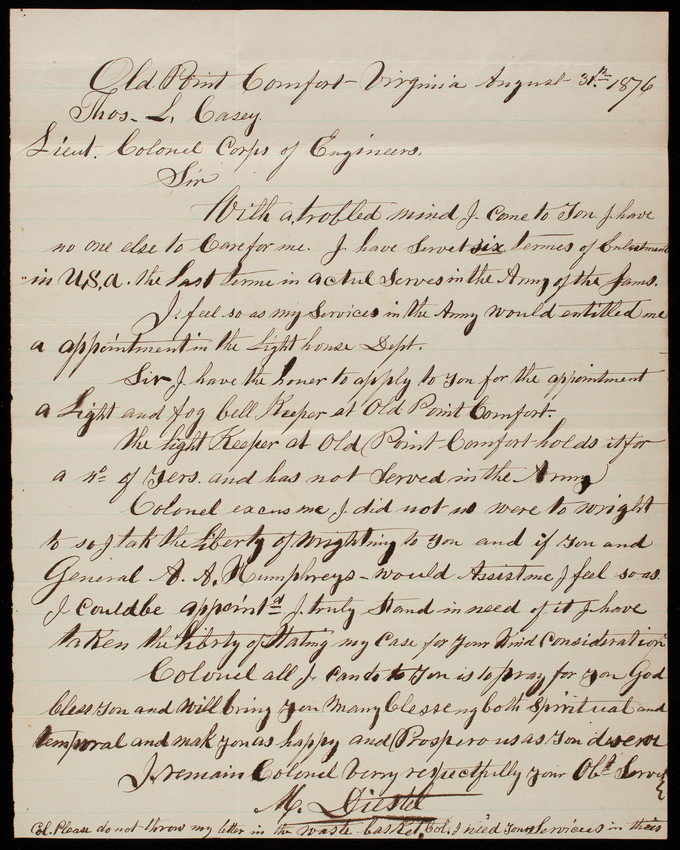 Old Point Comfort - Virginia August 31.st 1876
Thos. L. Casey.
Lieut. Colonel Corps of Engineers.
Sir
With a trobled mind I come to you I have
no one else to care for me. I have servet six termes of Enlistment
in U.S.A. the Last terme in actul Serves in the Army of the James.
I feel so as my Services in the Army would entitled me
a appointment in the Light house Dept.
Sir I have the honer to apply to you for the appointment
a Light and fog bell Keeper at Old Point Comfort.
the light Keeper at Old Point Comfort holds it for
a no. of yers. and has not Served in the Army
Colonel excus me I did not no were to wright
to so I tak the Liberty of wrightning to you and if you and
General A. A. Humphreys - would Assist me I feel so as
I could be appointd I truly Stand in need of it I have
taken the liberty of Stating my Case for your Kind Consideration
Colonel all I can do to you is to pray for you God
bless you and will bring you many blesseng both Spiritual and
temporal and mak you as happy and Prosperous as you deserve
I remain Colonel very respectfully your Obt Servt
M. Diestel
Col. Please do not throw my letter in the waste basket, Col. I need your Services in this